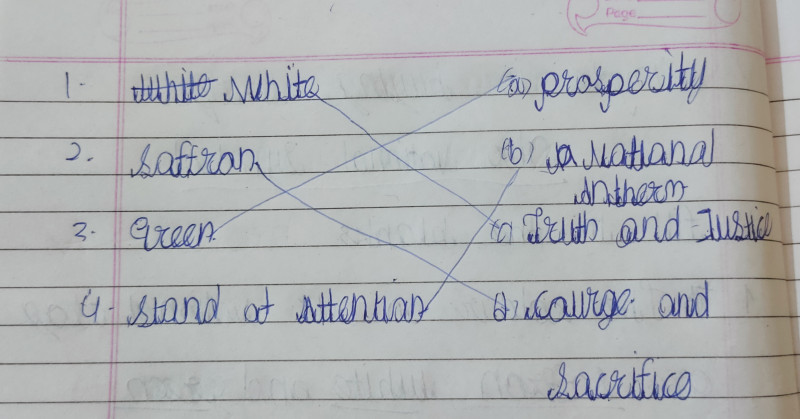 Page
1. White White (a) prosperity
2. Saffron (b) a National
Anthem
3. Green (c) Truth and Justice
4. Stand at Attention (d) Courge and
sacrifice